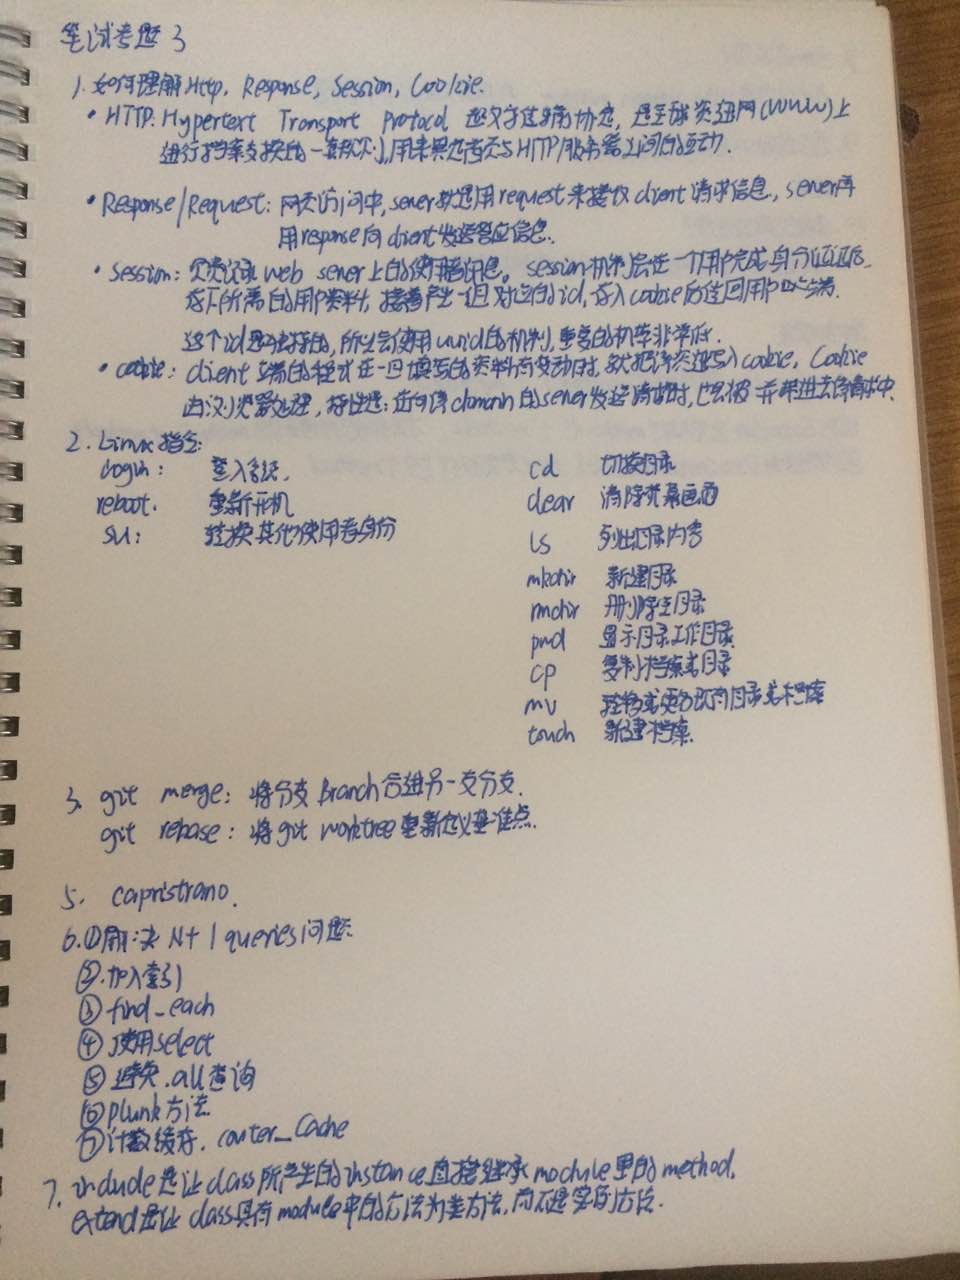 笔试专题3
1. 如何理解Http, Response, Session, Cookie.
• HTTP: Hypertext Transport Protocol 超文字传输协定, 是全球资讯网(WWW)上
进行档案交换的一套规则,用来规范网页与HTTP服务器之间的互动.
• Response/Request: 网页访问中,server就是用request来接收client请求信息, server再
用response向client发送答应信息.
• Session: 负责记录web server上的使用者讯息。session机制会在一个用户完成身分认证后,
存下所需的用户资料,接着产生一组对应的id,存入cookie后传回用户端.
这个id是独特的,所以会使用uuid的机制,重复的机率非常低.
• cookie: client端的程式在一旦填写的资料有变动时,就把该资讯写入cookie, Cookie
由浏览器处理,特性是:往同domain的server发送请求时,也会被一并带进去该请求中.
2. Linux指令:
login: 登入系统.
reboot. 重新开机
su: 转换其他使用者身份
cd 切换目录
clear 清除荧幕画面
ls 列出目录内容
mkdir 新建目录
rmdir 删除空目录
pwd 显示目录工作目录
cp 复制档案或目录
mv 转移或更名现有目录或档案
touch 新建档案.
3. git merge: 将分支Branch合进另一支分支.
git rebase: 将git worktree重新定义基准点.
5. capristrano.
6.①解决N+1 queries问题
②.加入索引
③ find_each
④ 使用select
⑤ 避免.all查询
⑥ plunk方法
⑦ 计数缓存. couter_Cache
7. include是让class所产生的instance直接继承module里的method.
extend是让class具有module中的方法为类方法,而不是实例方法.